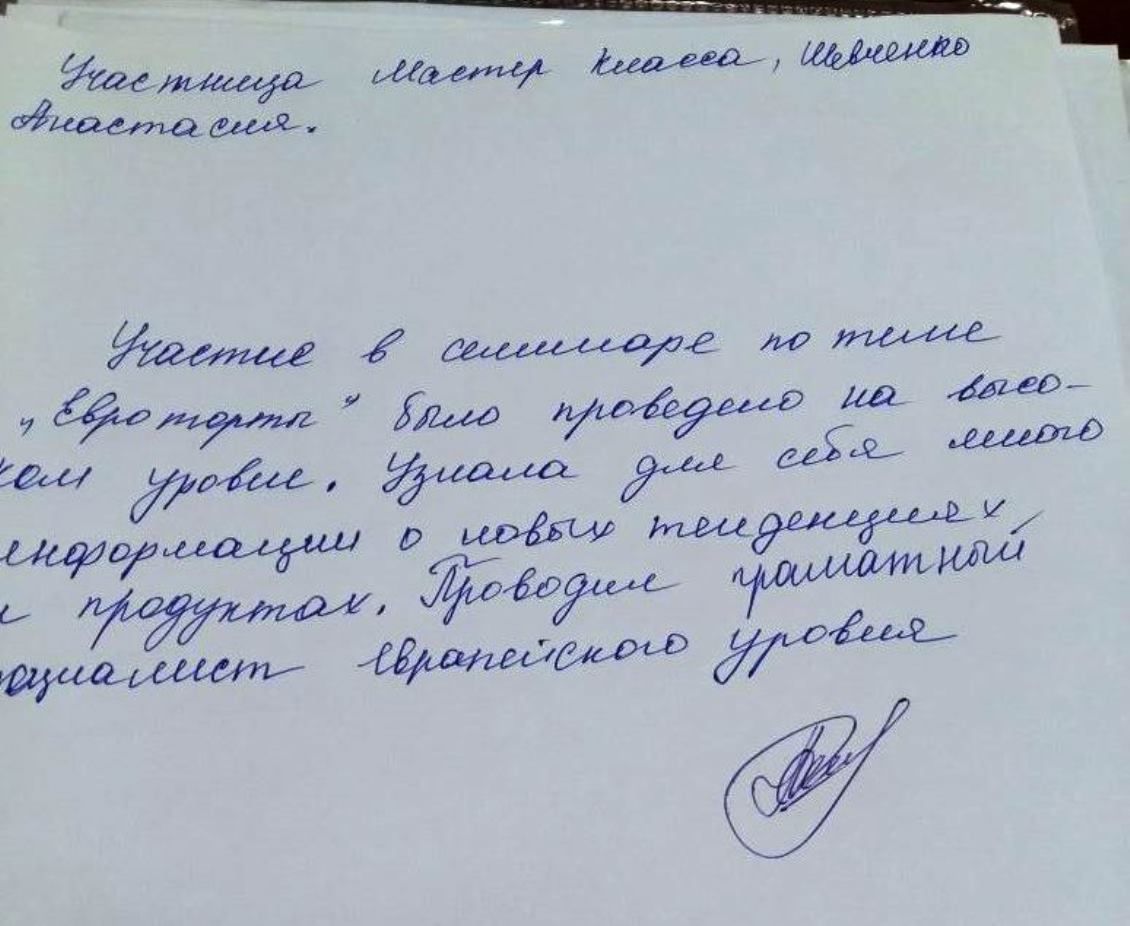 Участница Мастер класса, Шевченко
Анастасия.
Участие в семинаре по теме
„Евроторты" было проведено на высо-
ком уровне. Узнала для себя много
информации о новых тенденциях,
и продуктах. Проводил граматный
специалист европейского уровня